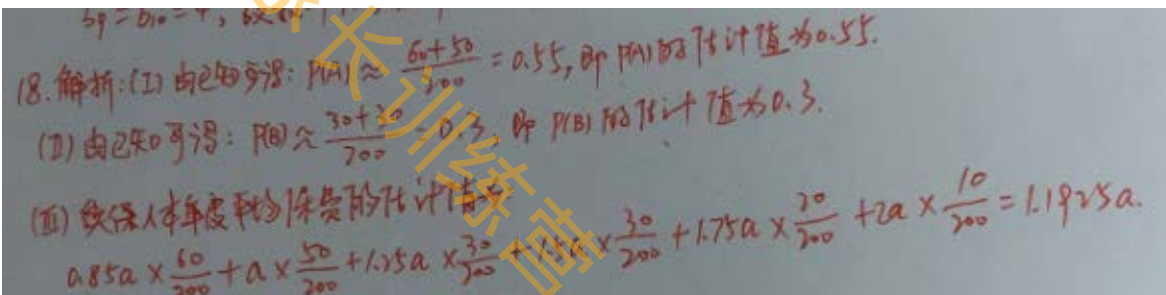 18.解析:(I) 由已知可得: P(A)≈ (60+50)/200 = 0.55, 即 P(A)的估计值为0.55.
(II) 由已知可得: P(B)≈ (30+30)/200 = 0.3, 即 P(B)的估计值为0.3.
(III) 续保人本年度平均保费的估计值为
0.85a × 60/200 + a × 50/200 + 1.25a × 30/200 + 1.5a × 30/200 + 1.75a × 20/200 + 2a × 10/200 = 1.1925a.
长训练营